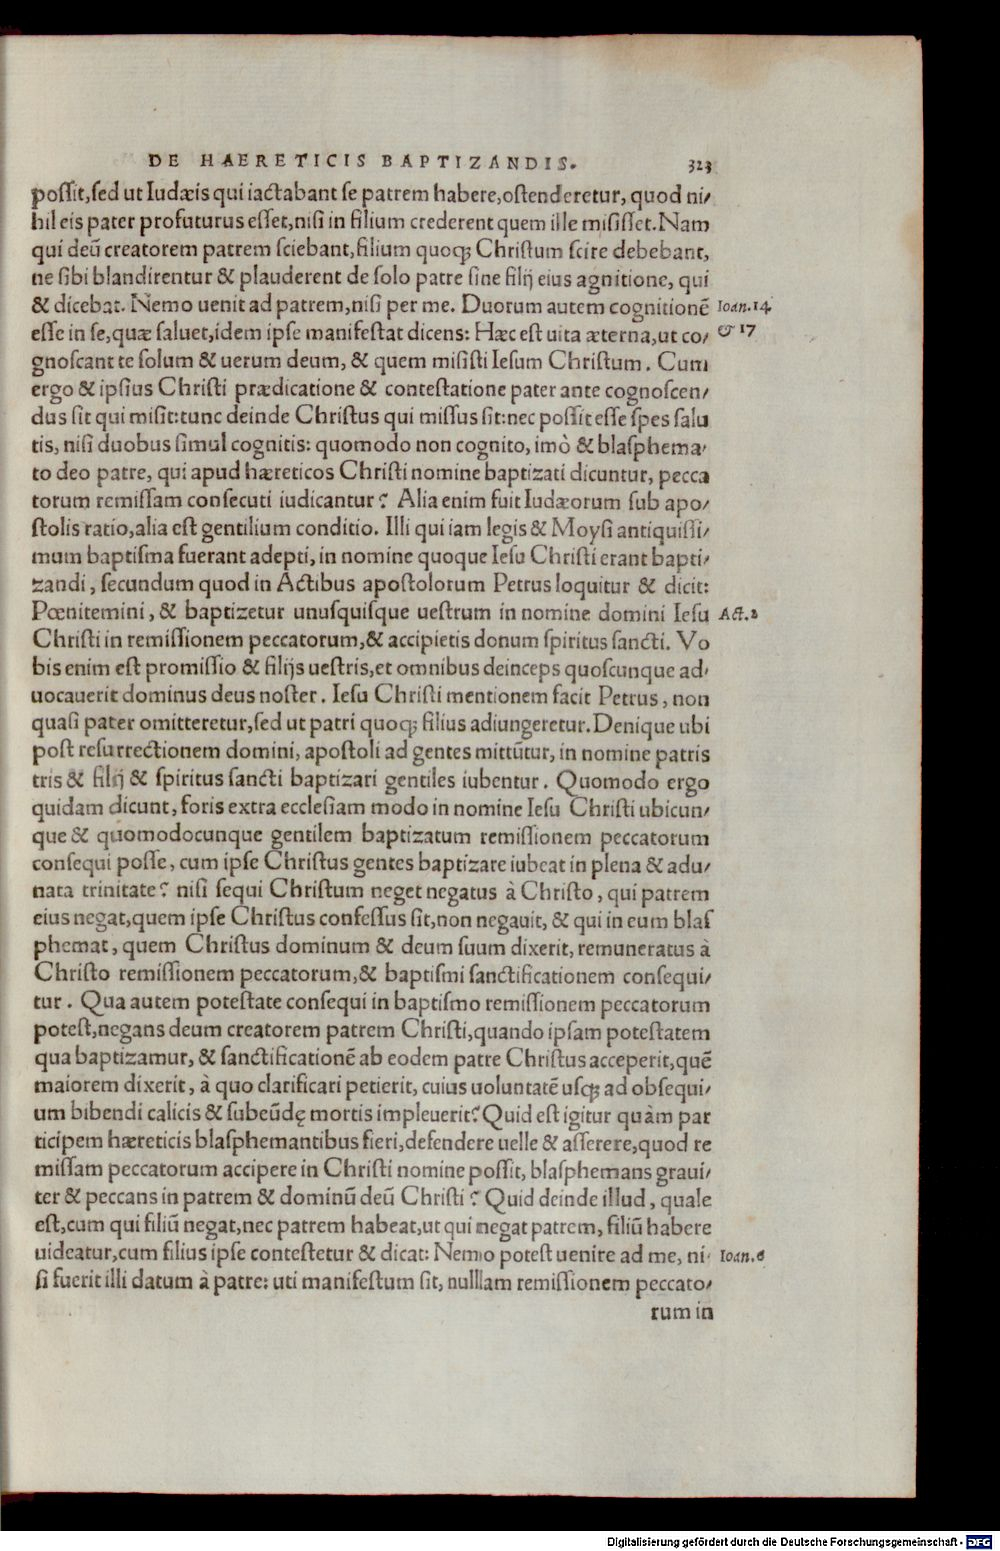 DE HAERETICIS BAPTIZANDIS. 323
possit, sed ut Iudæis qui iactabant se patrem habere, ostenderetur, quod ni/
hil eis pater profuturus esset, nisi in filium crederent quem ille misisset. Nam
qui deū creatorem patrem sciebant, filium quoq; Christum scire debebant,
ne sibi blandirentur & plauderent de solo patre sine filij eius agnitione, qui
& dicebat. Nemo uenit ad patrem, nisi per me. Duorum autem cognitionē Ioan. 14.
esse in se, quæ saluet, idem ipse manifestat dicens: Hæc est uita æterna, ut co/ & 17
gnoscant te solum & uerum deum, & quem misisti Iesum Christum. Cum
ergo & ipsius Christi prædicatione & contestatione pater ante cognoscen/
dus sit qui misit: tunc deinde Christus qui missus sit: nec possit esse spes salu
tis, nisi duobus simul cognitis: quomodo non cognito, imò & blasphema/
to deo patre, qui apud hæreticos Christi nomine baptizati dicuntur, pecca
torum remissam consecuti iudicantur? Alia enim fuit Iudæorum sub apo/
stolis ratio, alia est gentilium conditio. Illi qui iam legis & Moysi antiquissi/
mum baptisma fuerant adepti, in nomine quoque Iesu Christi erant bapti/
zandi, secundum quod in Actibus apostolorum Petrus loquitur & dicit:
Pœnitemini, & baptizetur unusquisque uestrum in nomine domini Iesu Act. 2
Christi in remissionem peccatorum, & accipietis donum spiritus sancti. Vo
bis enim est promissio & filijs uestris, et omnibus deinceps quoscunque ad/
uocauerit dominus deus noster. Iesu Christi mentionem facit Petrus, non
quasi pater omitteretur, sed ut patri quoq; filius adiungeretur. Denique ubi
post resurrectionem domini, apostoli ad gentes mittūtur, in nomine patris
tris & filij & spiritus sancti baptizari gentiles iubentur. Quomodo ergo
quidam dicunt, foris extra ecclesiam modo in nomine Iesu Christi ubicun/
que & quomodocunque gentilem baptizatum remissionem peccatorum
consequi posse, cum ipse Christus gentes baptizare iubeat in plena & adu/
nata trinitate? nisi sequi Christum neget negatus à Christo, qui patrem
eius negat, quem ipse Christus confessus sit, non negauit, & qui in eum blas
phemat, quem Christus dominum & deum suum dixerit, remuneratus à
Christo remissionem peccatorum, & baptismi sanctificationem consequi/
tur. Qua autem potestate consequi in baptismo remissionem peccatorum
potest, negans deum creatorem patrem Christi, quando ipsam potestatem
qua baptizamur, & sanctificationē ab eodem patre Christus acceperit, quē
maiorem dixerit, à quo clarificari petierit, cuius uoluntatē usq; ad obsequi/
um bibendi calicis & subeūdę mortis impleuerit? Quid est igitur quàm par
ticipem hæreticis blasphemantibus fieri, defendere uelle & asserere, quod re
missam peccatorum accipere in Christi nomine possit, blasphemans graui/
ter & peccans in patrem & dominū deū Christi? Quid deinde illud, quale
est, cum qui filiū negat, nec patrem habeat, ut qui negat patrem, filiū habere
uideatur, cum filius ipse contestetur & dicat: Nemo potest uenire ad me, ni/ Ioan. 6
si fuerit illi datum à patre: uti manifestum sit, nulllam remissionem peccato/
rum in
Digitalisierung gefördert durch die Deutsche Forschungsgemeinschaft - DFG